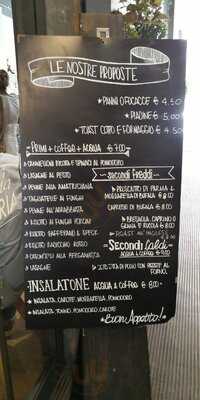 LE NOSTRE PROPOSTE
PANINI O FOCACCE € 4.50
PIADINE € 5.00
TOAST COTTO E FORMAGGIO € 4.50
PRIMI + COFFEE + ACQUA € 7.00
CANNELLONI RICOTTA E SPINACI AL POMODORO
LASAGNE AL PESTO
PENNE ALLA AMATRICIANA
TAGLIATELLE AI FUNGHI
PENNE ALL'ARRABBIATA
RISOTTO AI FUNGHI PORCINI
RISOTTO ZAFFERANO & SPECK
RISOTTO RADICCHIO ROSSO
ALLA BERGAMASCA
LASAGNE
SECONDI FREDDI
PROSCIUTTO DI PARMA &
MOZZARELLA DI BUFALA € 8.00
CAPRESE DI BUFALA € 8.00
BRESAOLA, CAPRINO O
GRANA E RUCOLA € 8.00
ROAST € 8.00
SECONDI Caldi
ACQUA & COFFEE € 9.00
DI POLLO CON PATATE AL
FORNO
INSALATONE ACQUA & COFFEE € 8.00
INSALATA, CAROTE, MOZZARELLA, POMODORO
INSALATA, TONNO, POMODORO, CAROTE
Buon Appetito!